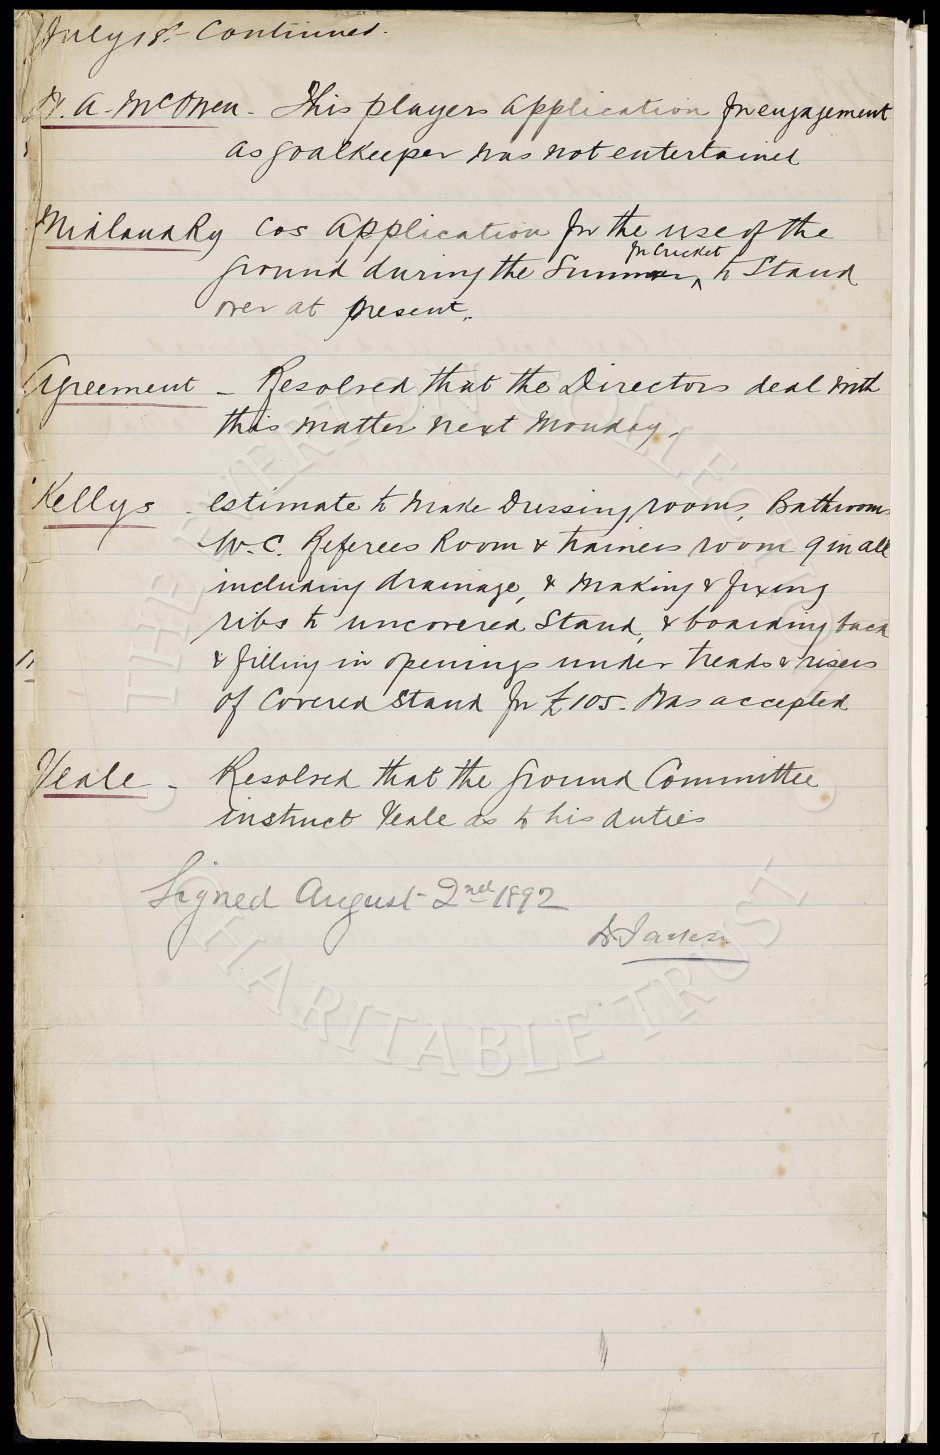 July 18th Continued.
A. McOwen - This players application for engagement
as goalkeeper was not entertained
Midland Ry Cos application for the use of the
for Cricket
ground during the Summer, ^ to Stand
over at present.
Agreement - Resolved that the Directors deal with
this matter next Monday.
Kellys - Estimate to make Dressing rooms, Bathrooms
W.C. Referees Room & trainers room 9 in all
including drainage, & making & fixing
ribs to uncovered Stand, & boarding back
& filling in openings under treads & risers
of Covered Stand for £105. Was accepted
Veale - Resolved that the ground Committee
instruct Veale as to his duties
Signed August 2nd 1892
© THE EVERTON COLLECTION
CHARITABLE TRUST